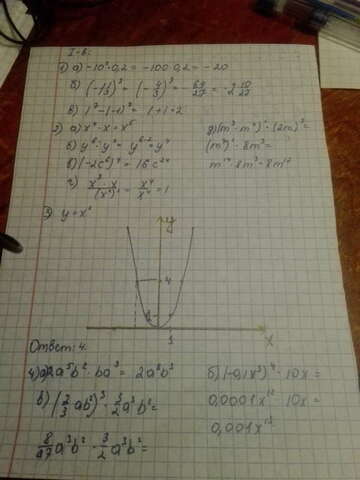 I-в.
1) а) -10² · 0,2 = -100 · 0,2 = -20
б) (-1 1/3)³ = (-4/3)³ = -64/27 = -2 10/27
в) 1² - (-1)³ = 1+1=2
2) а) x⁴ · x = x⁵
б) y⁶ : y² = y⁶⁻² = y⁴
в) (-2c⁶)⁴ = 16c²⁴
г) x³ · x / (x²)² = x⁴ / x⁴ = 1
д) (m³ · m⁴)² · (2m)³ =
(m⁷)² · 8m³ =
m¹⁴ · 8m³ = 8m¹⁷
3) y = x²
y
4
1
1
x
Ответ: 4.
4) а) 2a⁵b² · ba³ = 2a⁸b³
б) (-0,1x³)⁴ · 10x =
0,0001x¹² · 10x =
0,001x¹³
в) (2/3 ab²)³ · 3/2 a³b² =
8/27 a³b² · 3/2 a³b² =